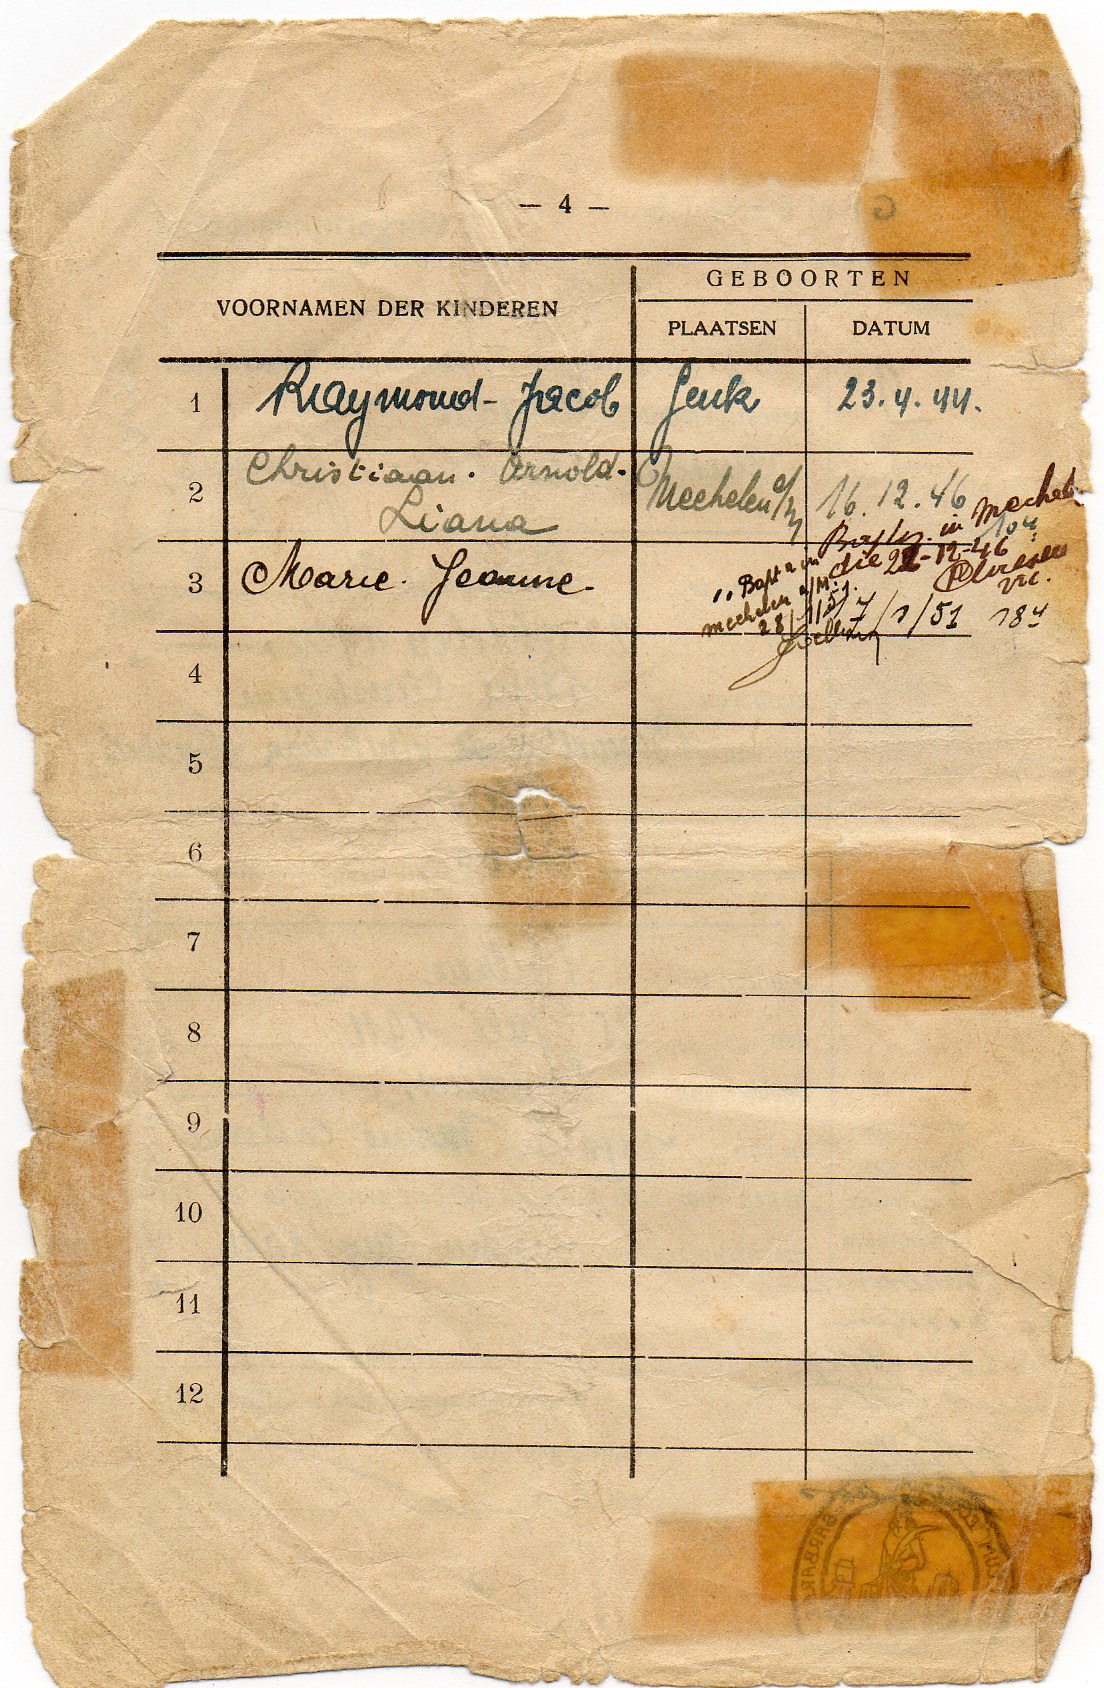 — 4 —
VOORNAMEN DER KINDEREN
GEBOORTEN
PLAATSEN
DATUM
1 Raymond - Jacob Genk 23.4.44.
2 Christiaan. Arnold- Mechelen a/M 16.12.46
Liana
in Mechel.
die 22-12-46
3 Marie. Jeanne. 7/1/51 18u
"Bapt. in
Mechelen a/M.
28/1/51.
4
5
6
7
8
9
10
11
12